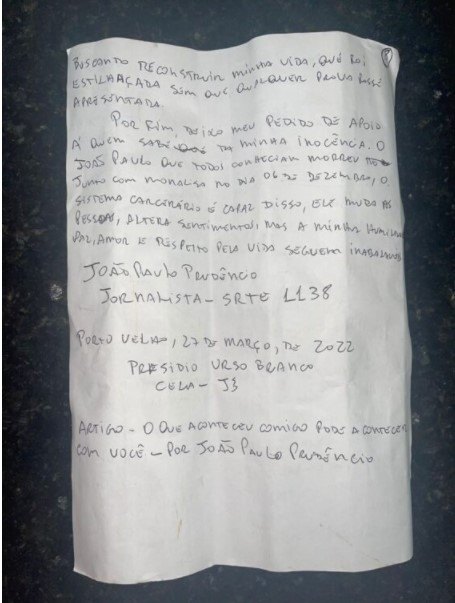 BUSCANDO RECONSTRUIR MINHA VIDA, QUE FOI
ESTILHAÇADA SEM QUE QUALQUER PROVA FOSSE
APRESENTADA.
POR FIM, DEIXO MEU PEDIDO DE APOIO
A QUEM SABE DA MINHA INOCÊNCIA. O
JOÃO PAULO QUE TODOS CONHECIAM MORREU
JUNTO COM MONALSA NO DIA 06 DE DEZEMBRO, O
SISTEMA CARCERÁRIO É CAPAZ DISSO, ELE MUDA AS
PESSOAS, ALTERA SENTIMENTOS, MAS A MINHA
PAZ, AMOR E RESPEITO PELA VIDA SEGUEM
JOÃO PAULO PRUDÊNCIO
JORNALISTA - SRTE 1138
PORTO VELHO, 27 DE MARÇO, DE 2022
PRESIDIO URSO BRANCO
CELA - J3
ARTIGO - O QUE ACONTECEU COMIGO PODE ACONTECER
COM VOCÊ - POR JOÃO PAULO PRUDÊNCIO